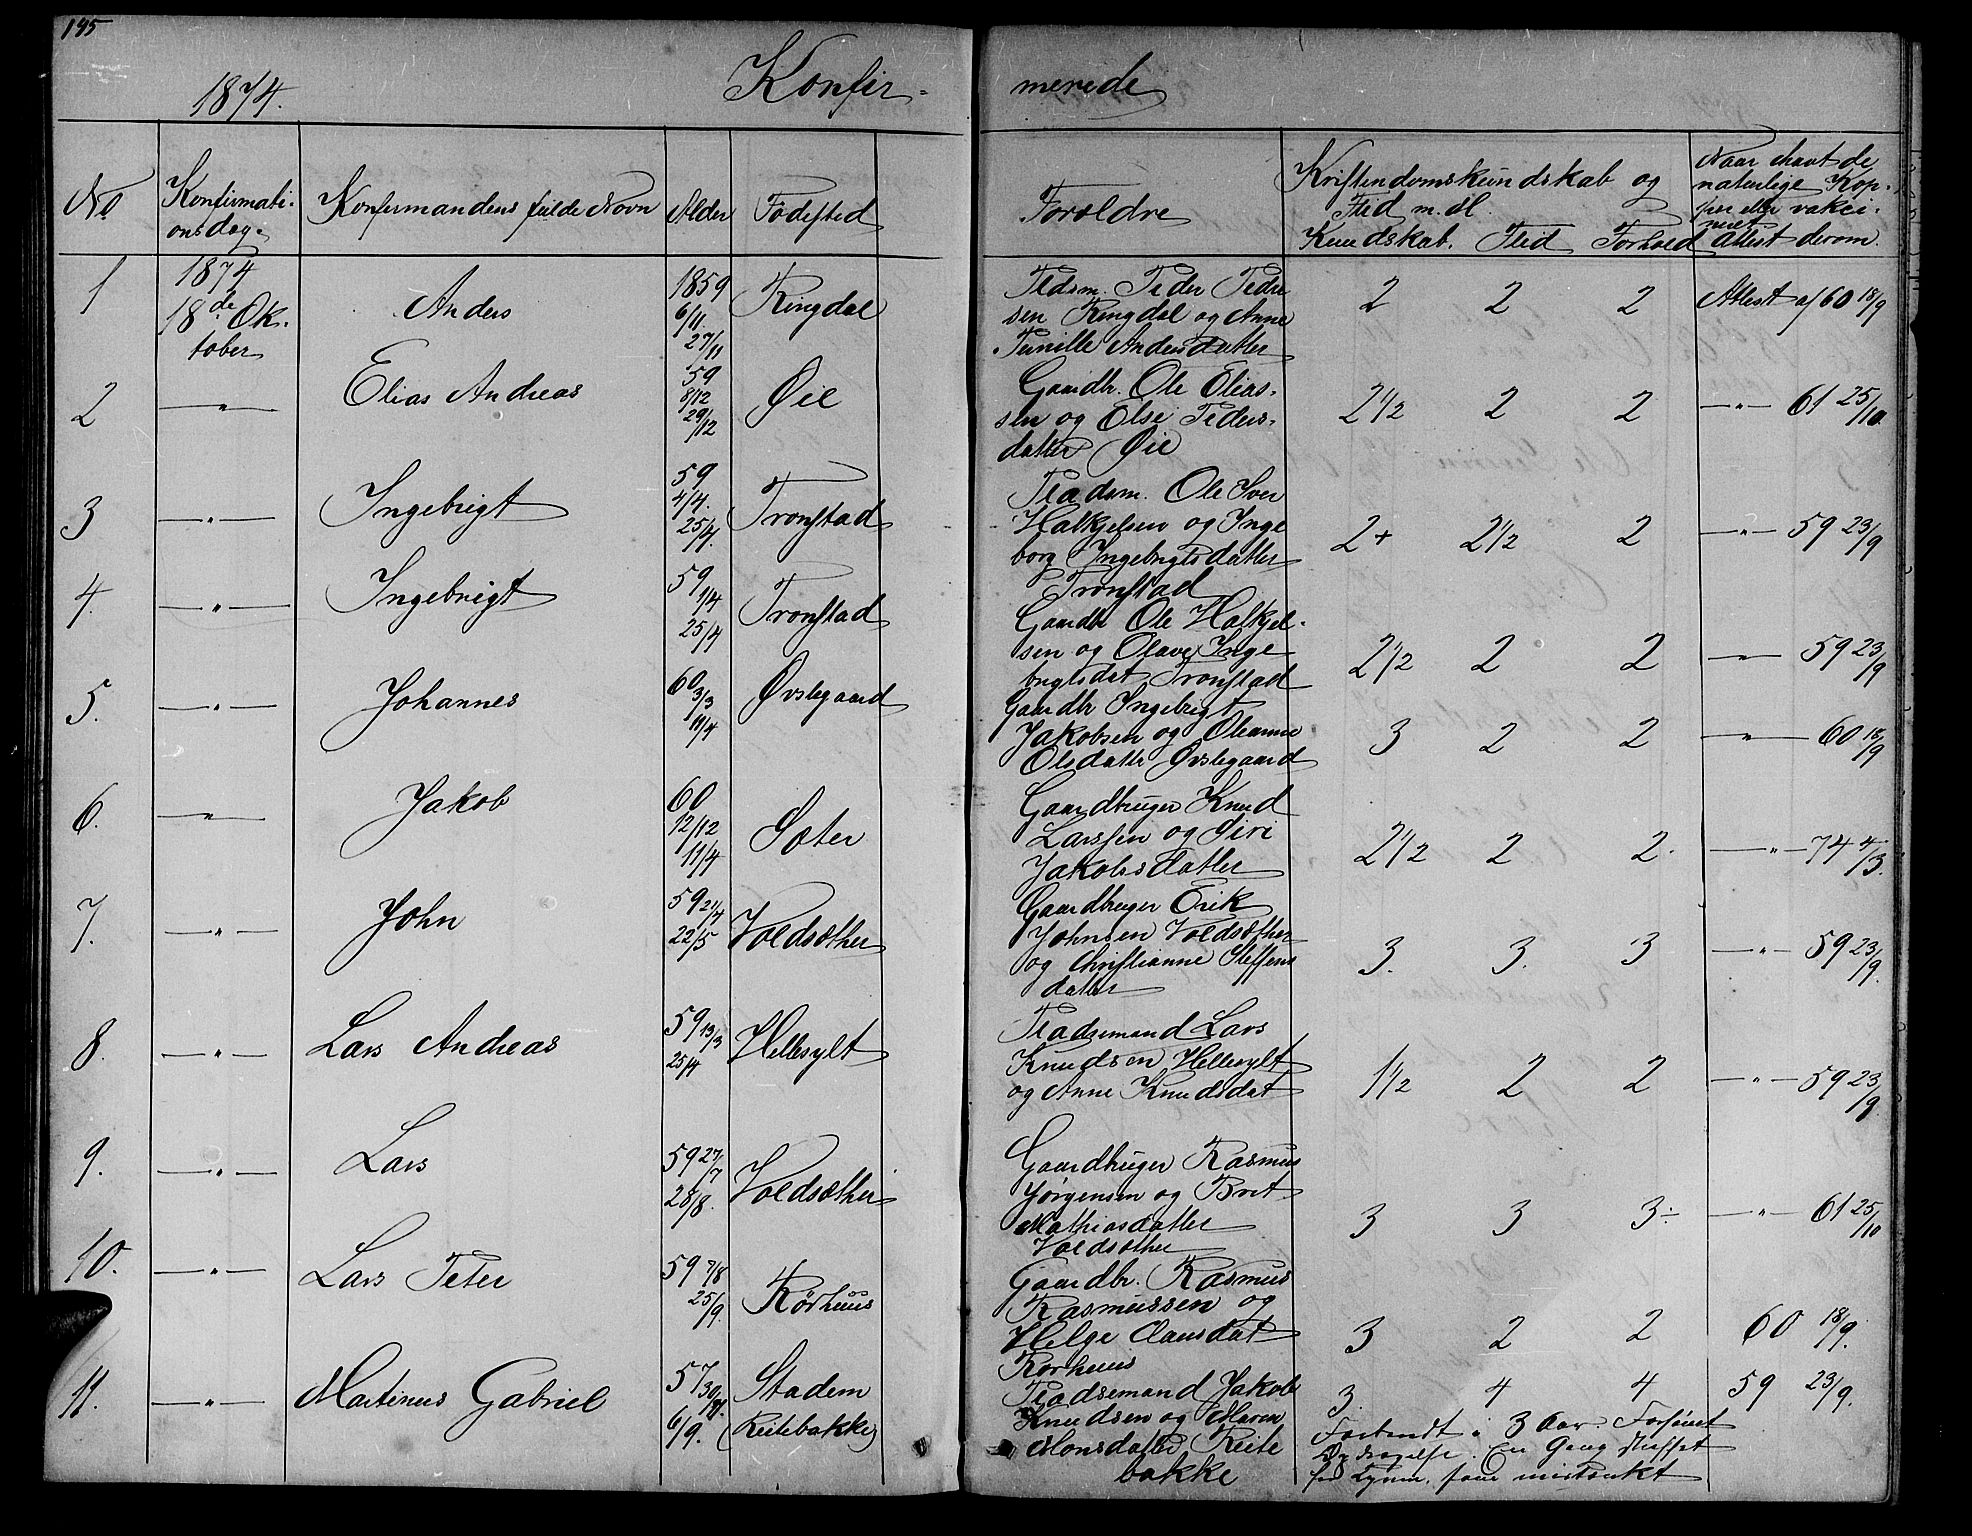 195
1874.
Konfir-
merede
No
Konfirmati-
onsdag.
Konfirmandens fulde Navn
Alder
Fødested
Forældre
Kristendomskundskab og
Flid m.M.
Kundskab. Flid Forhold
Naar havt de
naturlige Kop-
per eller vakci-
neret
Attest derom.
1
1874
18de Ok-
tober
Anders
1859
6/11.
27/11
Ringdal
Pladsm. Peder Peder
sen Ringdal og Anne
Pernille Andersdatter
2 2 2
Attest af 60 18/9
2
—„—
Elias Andreas
59
8/12
29/12
Øie
Gaardbr. Ole Elias-
sen og Else Peders-
datter Øie
2 1/2 2 2
—„— 61 25/10.
3
—„—
Ingebrigt
59
4/4.
25/4.
Tronstad
Pladsm. Ole Iver
Halkjelsen og Inge
borg Ingebrigtsdatter
Tronstad
2+ 2 1/2 2
—„— 59 23/9
4.
—„—
Ingebrigt
59
1/4
25/4
Tronstad
Gaardbr Ole Halkjel-
sen og Olave Inge
brigtsdat Tronstad
2 1/2 2 2
—„— 59 23/9
5.
—„—
Johannes
60
3/3
11/4
Øvstegaard
Gaardbr Ingebrigt
Jakobsen og Oleanne
Olsdatter Øvstegaard
3 2 2
—„— 60 18/9
6.
—„—
Jakob
60
12/12
11/4
Sæter
Gaardbruger Knud
Larssen og Siri
Jakobsdatter
2 1/2 2 2.
—„— 74 4/3.
7.
—„—
John
59 21/4
22/5
Voldsæther
Gaardbruger Erik
Johnsen Voldsæther
og Christianne Steffens
datter
3. 3. 3
—„— 59 23/9.
8.
—„—
Lars Andreas
59 13/3
25/4
Hellesylt
Pladsemand Lars
Knudsen Hellesylt
og Anne Knudsdat
1 1/2 2 2
—„— 59 23/9
9.
—„—
Lars
59 27/7
28/8.
Voldsæther
Gaardbruger Rasmus
Jørgensen og Bret
Mathiasdatter
Voldsæther
3 3 3÷
—„— 61 25/10
10.
—„—
Lars Peter
59 7/8
25/9.
Rørhuus
Gaardbr. Rasmus
Rasmussen og
Helge Clausdat
Rørhuus
3 2 2
60 18/9.
11.
—„—
Martinus Gabriel
57
6/9.
Stadem
(Reitebakke)
Pladsemand Jakob
Knudsen og Maren
Monsdatter Reite
bakke
3. 4 4
59 23/9.
i 3 Aar.
En Gang straffet
for mistænkt